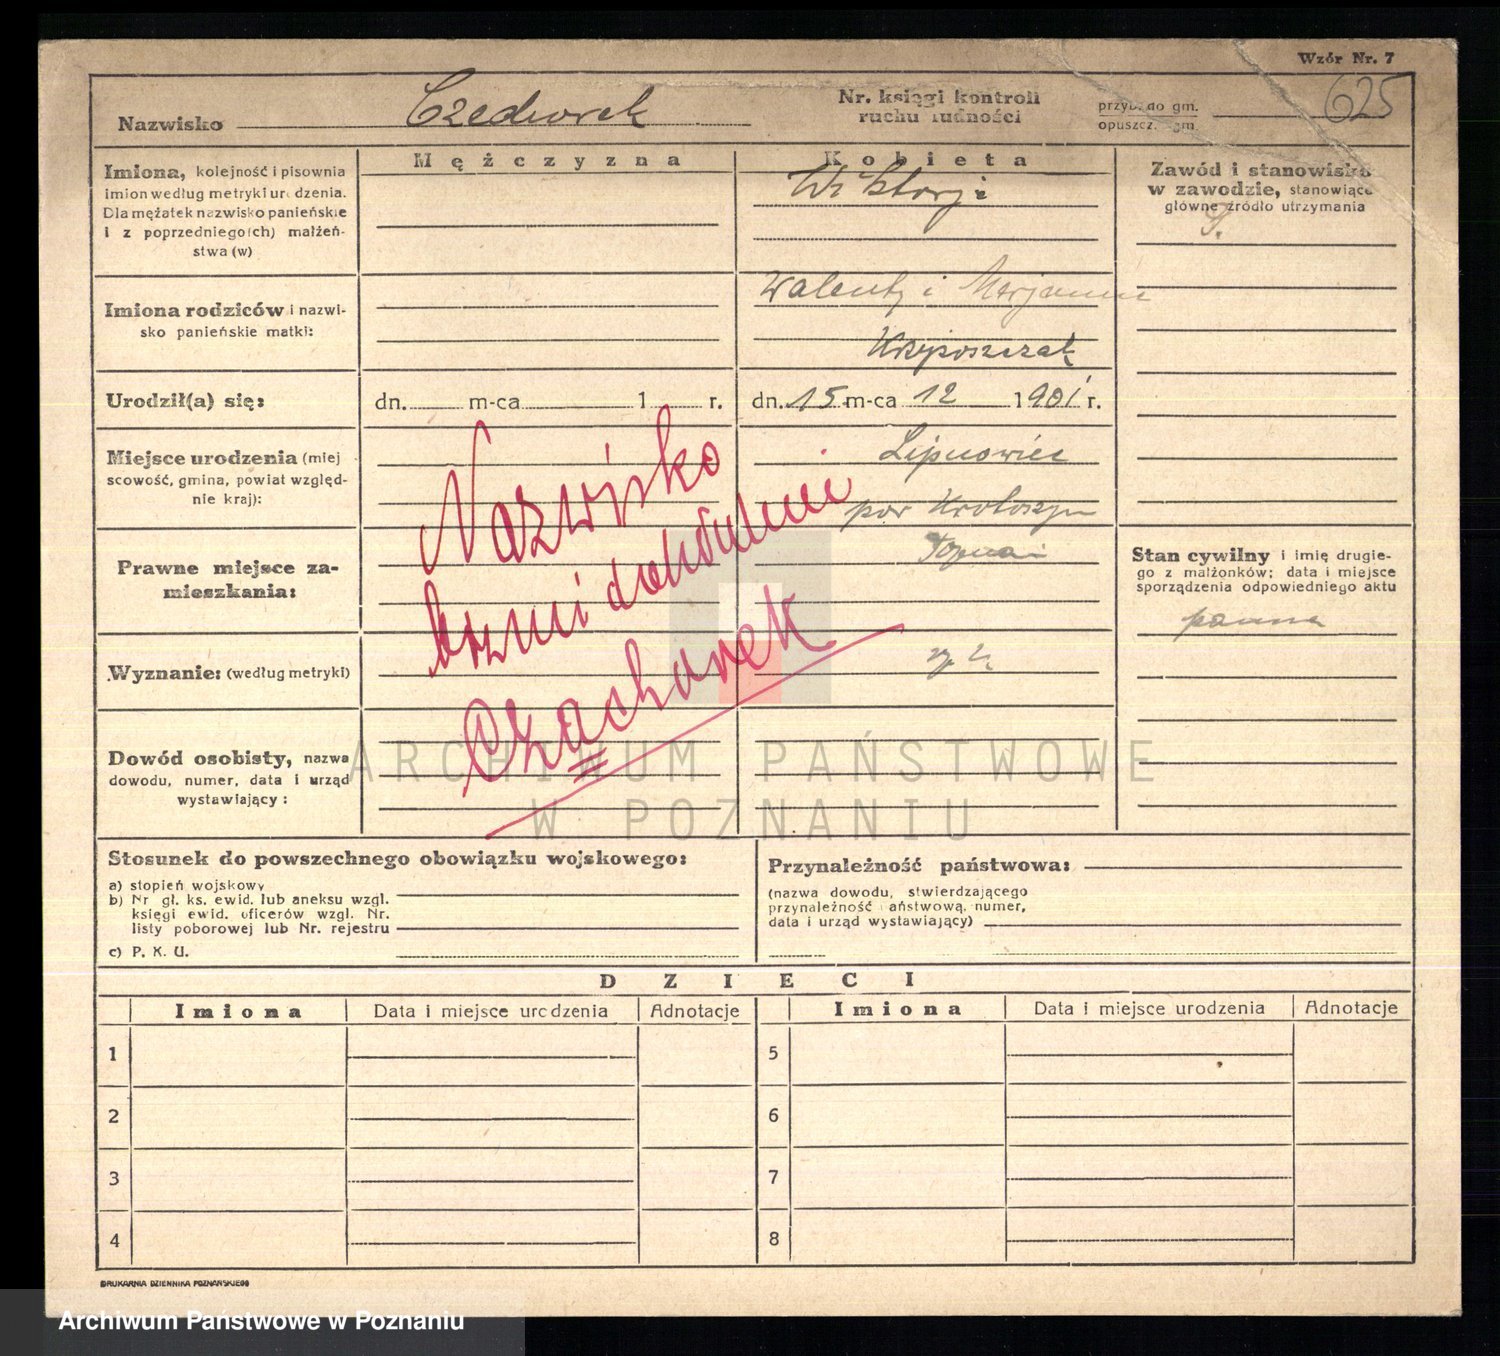 Wzór Nr. 7
Nazwisko
Nr. księgi kontroli
ruchu ludności
przyb. do gm.
opuszcz. gm.
625
Mężczyzna
Kobieta
Imiona, kolejność i pisownia
imion według metryki urodzenia.
Dla mężatek nazwisko panieńskie
i z poprzedniego(ch) małżeń-
stwa (w)
Wiktorja
Zawód i stanowisko
w zawodzie, stanowiące
główne źródło utrzymania
Imiona rodziców i nazwi-
sko panieńskie matki:
Walenty i Marjanna
Urodził(a) się:
dn. m-ca 1 r.
dn. 15 m-ca 12 1901 r.
Miejsce urodzenia (miej
scowość, gmina, powiat względ-
nie kraj):
Lipnowiec
pow Krotoszyn
Prawne miejsce za-
mieszkania:
Stan cywilny i imię drugie-
go z małżonków; data i miejsce
sporządzenia odpowiedniego aktu
panna
Wyznanie: (według metryki)
Nazwisko
brzmi
Czachorek
Dowód osobisty, nazwa
dowodu, numer, data i urząd
wystawiający:
ARCHIWUM PAŃSTWOWE
W POZNANIU
Stosunek do powszechnego obowiązku wojskowego:
a) stopień wojskowy
b) Nr gł. ks. ewid. lub aneksu wzgl.
księgi ewid. oficerów wzgl. Nr.
listy poborowej lub Nr. rejestru
c) P. K. U.
Przynależność państwowa:
(nazwa dowodu, stwierdzającego
przynależność państwową, numer,
data i urząd wystawiający)
DZIECI
Imiona Data i miejsce urodzenia Adnotacje Imiona Data i miejsce urodzenia Adnotacje
1 5
2 6
3 7
4 8
DRUKARNIA DZIENNIKA POZNAŃSKIEGO
Archiwum Państwowe w Poznaniu